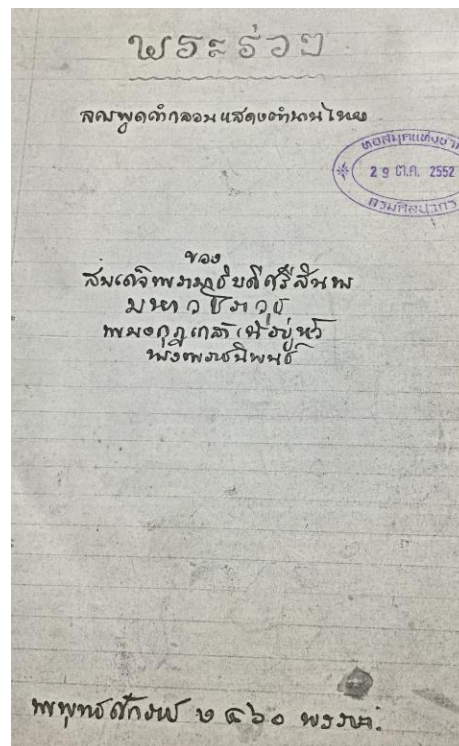 พระร่วง
ลครพูดคำกลอนแสดงตำนานไทย
หอสมุดแห่งชาติ
29 ต.ค. 2552
กรมศิลปากร
ของ
สมเด็จพระรามาธิบดีศรีสินทร
มหาวชิราวุธ
พระมงกุฎเกล้าเจ้าอยู่หัว
ทรงพระราชนิพนธ์
พระพุทธศักราช ๒๔๖๐ พรรษา